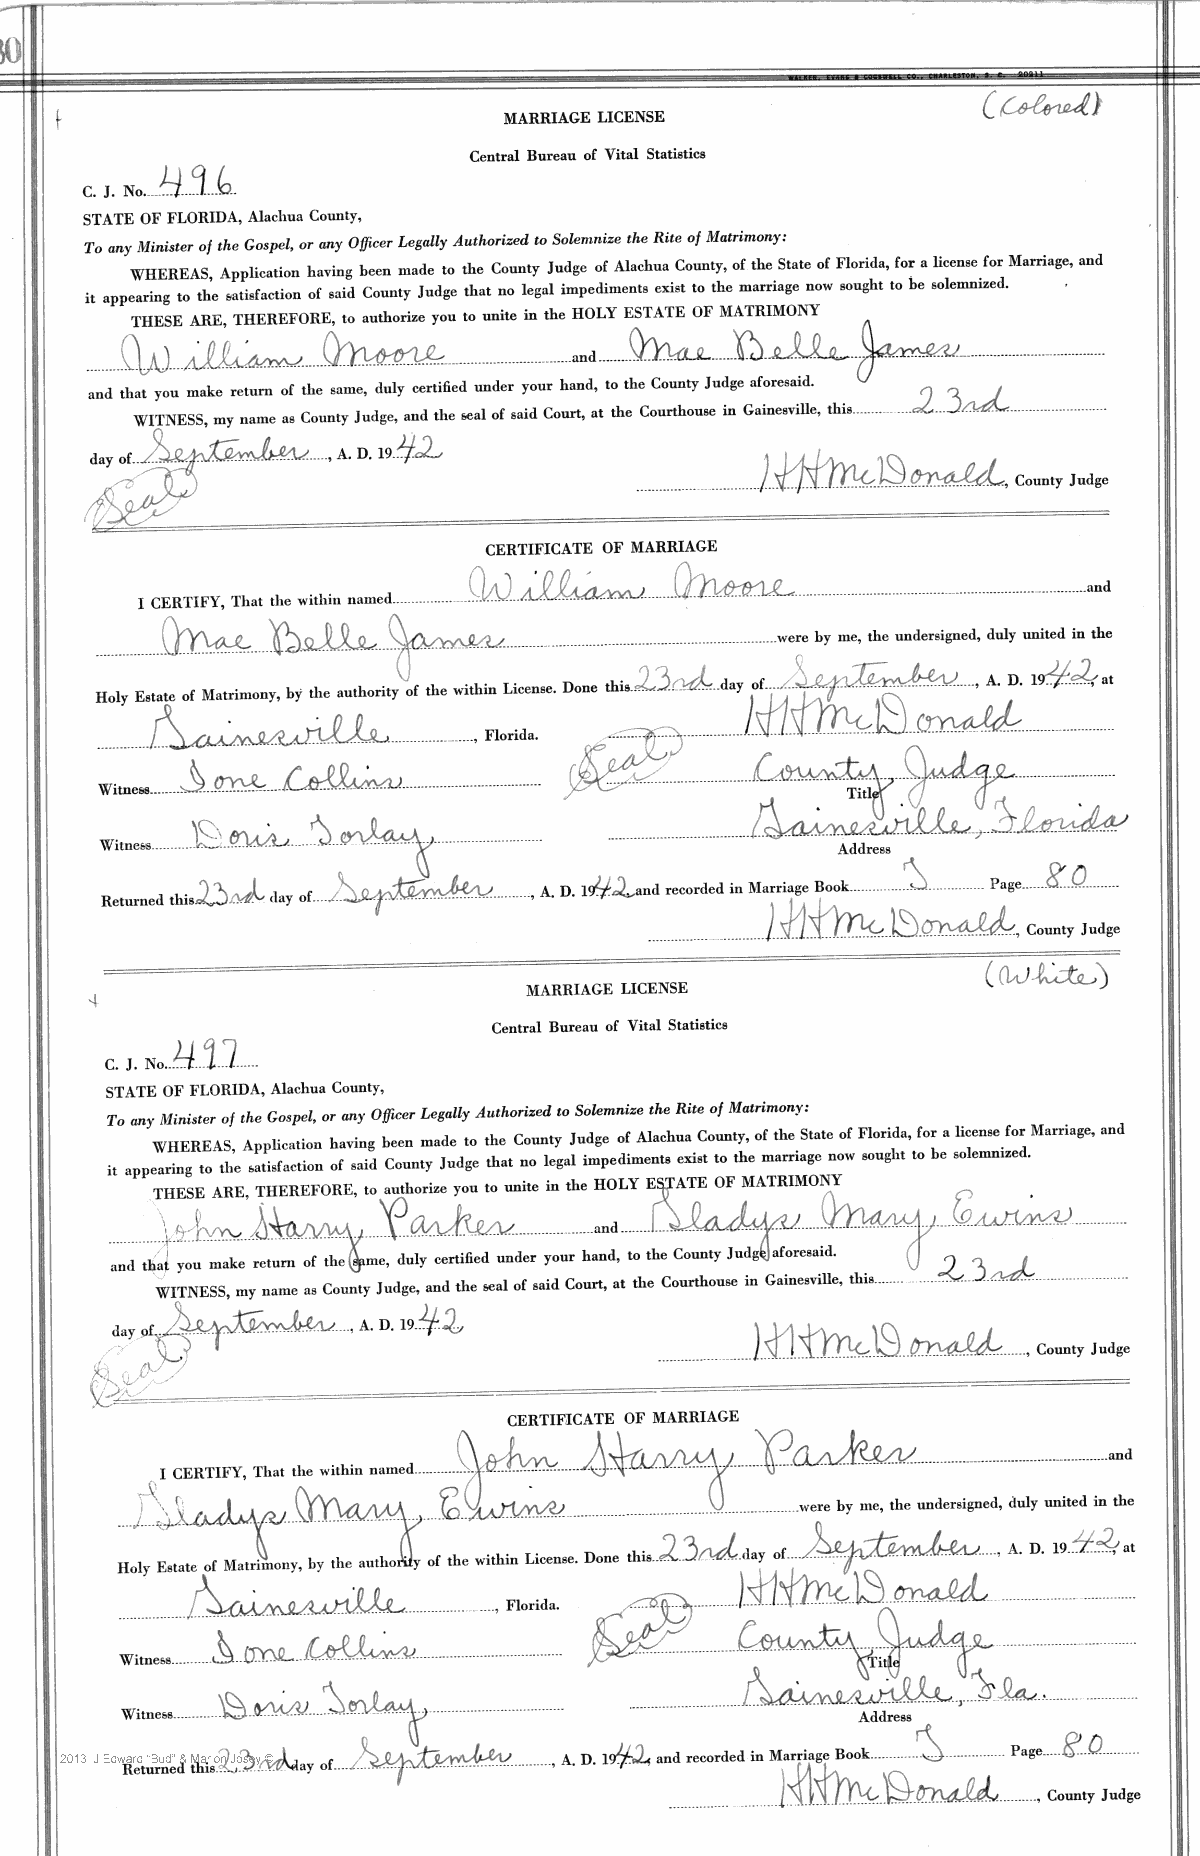 80
WALKER, EVANS & COGSWELL CO., CHARLESTON, S. C. 20911
(Colored)
MARRIAGE LICENSE
Central Bureau of Vital Statistics
C. J. No. 496
STATE OF FLORIDA, Alachua County,
To any Minister of the Gospel, or any Officer Legally Authorized to Solemnize the Rite of Matrimony:
WHEREAS, Application having been made to the County Judge of Alachua County, of the State of Florida, for a license for Marriage, and
it appearing to the satisfaction of said County Judge that no legal impediments exist to the marriage now sought to be solemnized.
THESE ARE, THEREFORE, to authorize you to unite in the HOLY ESTATE OF MATRIMONY
William Moore and Mae Belle James
and that you make return of the same, duly certified under your hand, to the County Judge aforesaid.
WITNESS, my name as County Judge, and the seal of said Court, at the Courthouse in Gainesville, this 23rd
day of September, A. D. 1942
HHMcDonald, County Judge
(Seal)
CERTIFICATE OF MARRIAGE
I CERTIFY, That the within named William Moore and
Mae Belle James were by me, the undersigned, duly united in the
Holy Estate of Matrimony, by the authority of the within License. Done this 23rd day of September, A. D. 1942, at
Gainesville, Florida. (Seal) HHMcDonald
Witness Ione Collins County Judge
Title
Witness Doris Torlay Gainesville, Florida
Address
Returned this 23rd day of September, A. D. 1942, and recorded in Marriage Book J Page 80
HHMcDonald, County Judge
(White)
MARRIAGE LICENSE
Central Bureau of Vital Statistics
C. J. No. 497
STATE OF FLORIDA, Alachua County,
To any Minister of the Gospel, or any Officer Legally Authorized to Solemnize the Rite of Matrimony:
WHEREAS, Application having been made to the County Judge of Alachua County, of the State of Florida, for a license for Marriage, and
it appearing to the satisfaction of said County Judge that no legal impediments exist to the marriage now sought to be solemnized.
THESE ARE, THEREFORE, to authorize you to unite in the HOLY ESTATE OF MATRIMONY
John Harry Parker and Gladys Mary Ewins
and that you make return of the same, duly certified under your hand, to the County Judge aforesaid.
WITNESS, my name as County Judge, and the seal of said Court, at the Courthouse in Gainesville, this 23rd
day of September, A. D. 1942
HHMcDonald, County Judge
(Seal)
CERTIFICATE OF MARRIAGE
I CERTIFY, That the within named John Harry Parker and
Gladys Mary Ewins were by me, the undersigned, duly united in the
Holy Estate of Matrimony, by the authority of the within License. Done this 23rd day of September, A. D. 1942, at
Gainesville, Florida. (Seal) HHMcDonald
Witness Ione Collins County Judge
Title
Witness Doris Torlay Gainesville, Fla.
Address
2013 J Edward "Bud" & Marion Josey ©
Returned this 23rd day of September, A. D. 1942, and recorded in Marriage Book J Page 80
HHMcDonald, County Judge